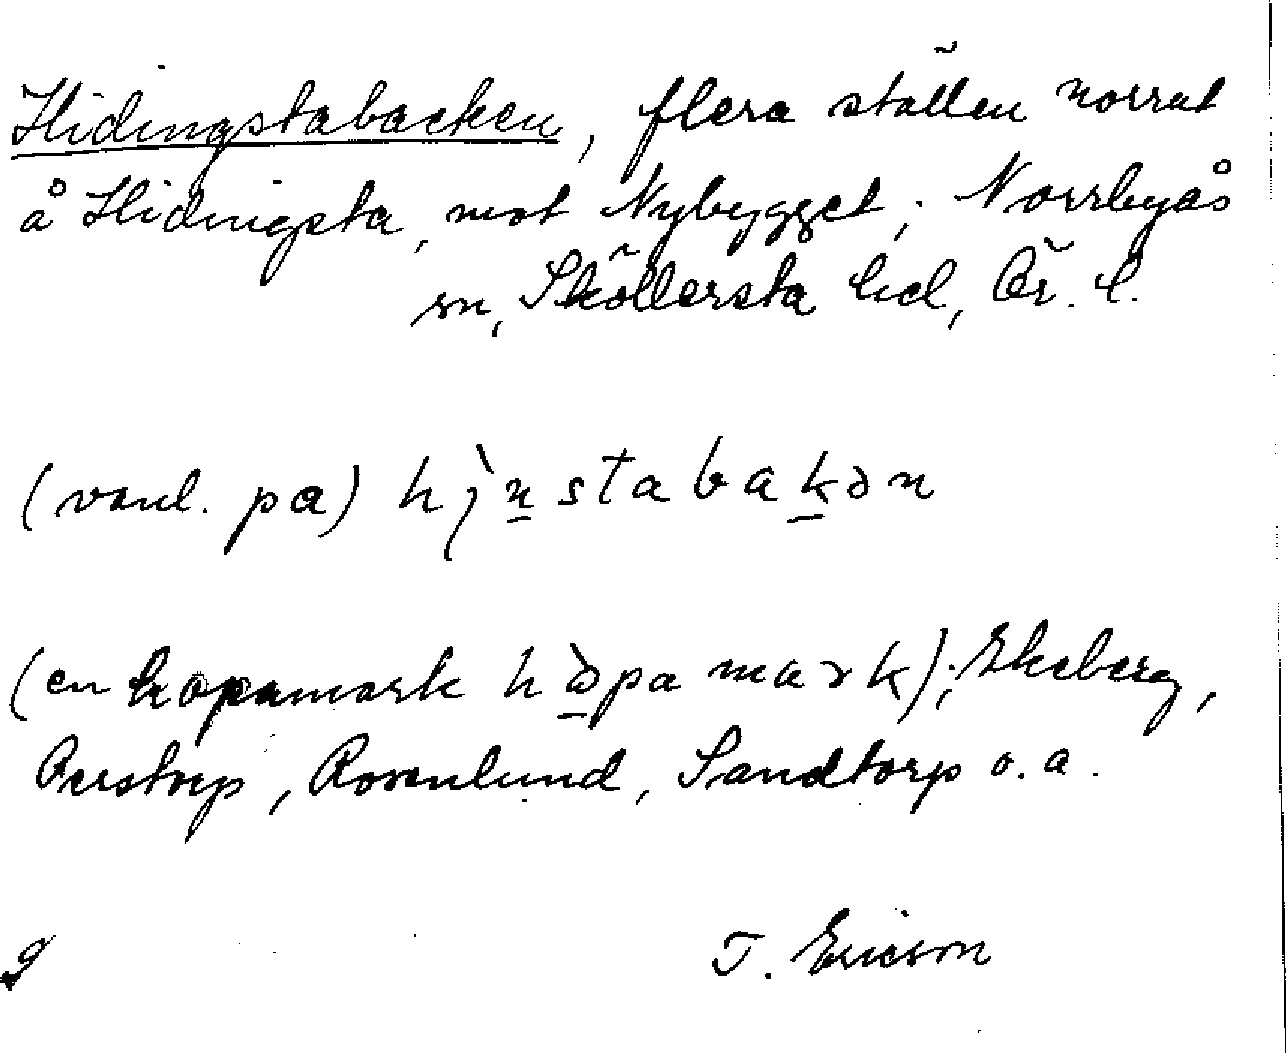 Hidingstabacken, flera ställen norrut
å Hidingsta, mot Nybygget; Norrbyås
sn, Sköllersta hd, Ör. l.
(vanl. pa) hi̯ǹstabakən
(en hopamark hò̱pamark); Ekeberg,
Perstorp, Rosenlund, Sandtorp o.a.
T. Ericson